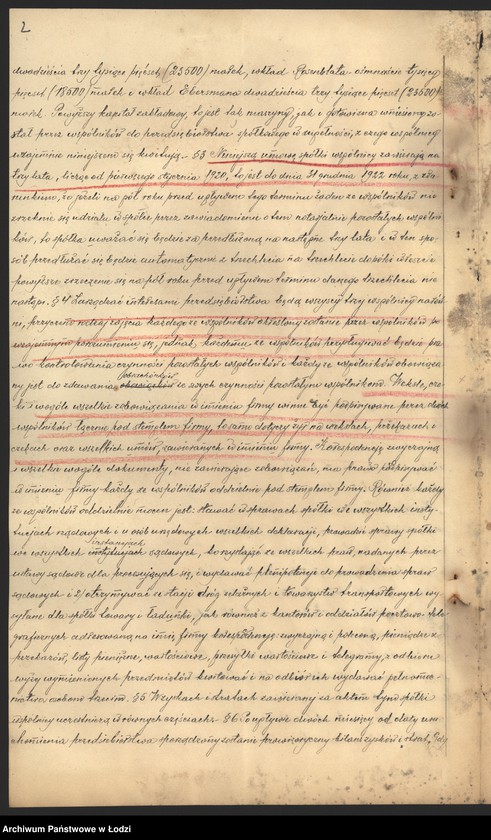 2
dwadzieścia trzy tysiące pięćset (23500) marek, wkład Rosenblata - osiemnaście tysięcy
pięćset (18500) marek i wkład Ebersmana dwadzieścia trzy tysiące pięćset (23500)
marek. Powyższy kapitał zakładowy, to jest tak maszyny, jak i gotowizna wniesiony zo-
stał przez wspólników do przedsiębiorstwa spółkowego w zupełności, z czego wspólnicy
wzajemnie niniejszem się kwitują. - §3 Niniejszą umowę spółki wspólnicy zawierają na
trzy lata, licząc od pierwszego stycznia 1920, to jest do dnia 31 grudnia 1922 roku, z zła-
nieniem, że jeżeli na pół roku przed upływem tego terminu żaden ze wspólników nie
zrzeknie się udziału w spółce przez zawiadomienie o tem notarjalnie pozostałych wspólni-
ków, to spółka uważać się będzie za przedłużoną na następne trzy lata i w ten spo-
sób przedłużać się będzie automatycznie z trzechlecia na trzechlecie dopóki wyżej
powyższe zrzeczenie się na pół roku przed upływem terminu danego trzechlecia nie
nastąpi. §4 Zarządzać interesami przedsiębiorstwa będą wszyscy trzej wspólnicy razem
przyczem rodzaj zajęcia każdego ze wspólników określony zostanie przez wspólników po
wzajemnym porozumieniu się, jednak, każdemu ze wspólników przysługiwać będzie pra-
wo kontrolowania czynności pozostałych wspólników i każdy ze wspólników obowiąza-
ny jest do zdawania rachunków ze swych czynności pozostałym wspólnikom. Weksle, cze-
ki i wogóle wszelkie zobowiązania w imieniu firmy winne być podpisywane przez dwóch
wspólników łącznie pod stemplem firmy, to samo dotyczy żyr na wekslach, przekazach i
czekach oraz wszelkich umów, zawieranych w imieniu firmy. Korespondencję zwyczajną
i wszelkie wogóle dokumenty, nie zawierające zobowiązań, ma prawo podpisywać
w imieniu firmy każdy ze wspólników oddzielnie pod stemplem firmy. Również każdy
ze wspólników oddzielnie mocen jest: stawać w sprawach spółki we wszystkich insty-
tucjach rządowych i u osób urzędowych wszelkich deklaracji, prowadzić sprawy spółki
we wszystkich instancjach sądowych, korzystając ze wszelkich praw, nadanych przez
ustawy sądowe dla procesujących się, i wydawać plenipotencje do prowadzenia spraw
sądowych i 2/ otrzymywać ze stacji dróg żelaznych i towarzystw transportowych wy-
syłane dla spółki towary i ładunki, jak również z kantorów i oddziałów pocztowo-tele-
graficznych adresowaną na imię firmy korespondencję zwyczajną i poleconą, pieniądze z
przekazów, listy pieniężne, wartościowe, przesyłki wartościowe i telegramy, z odbioru
wyżej wymienionych przedmiotów kwitować i na odbiór ich wydawać pełnomo-
cnictwa osobom trzecim. §5 W zyskach i stratach zawieranej za aktem tym spółki
wspólnicy uczestniczą w równych częściach. - §6. Po upływie dwóch miesięcy od daty uru-
chomienia przedsiębiorstwa sporządzony zostanie prowizoryczny bilans zysków i strat,
Archiwum Państwowe w Łodzi